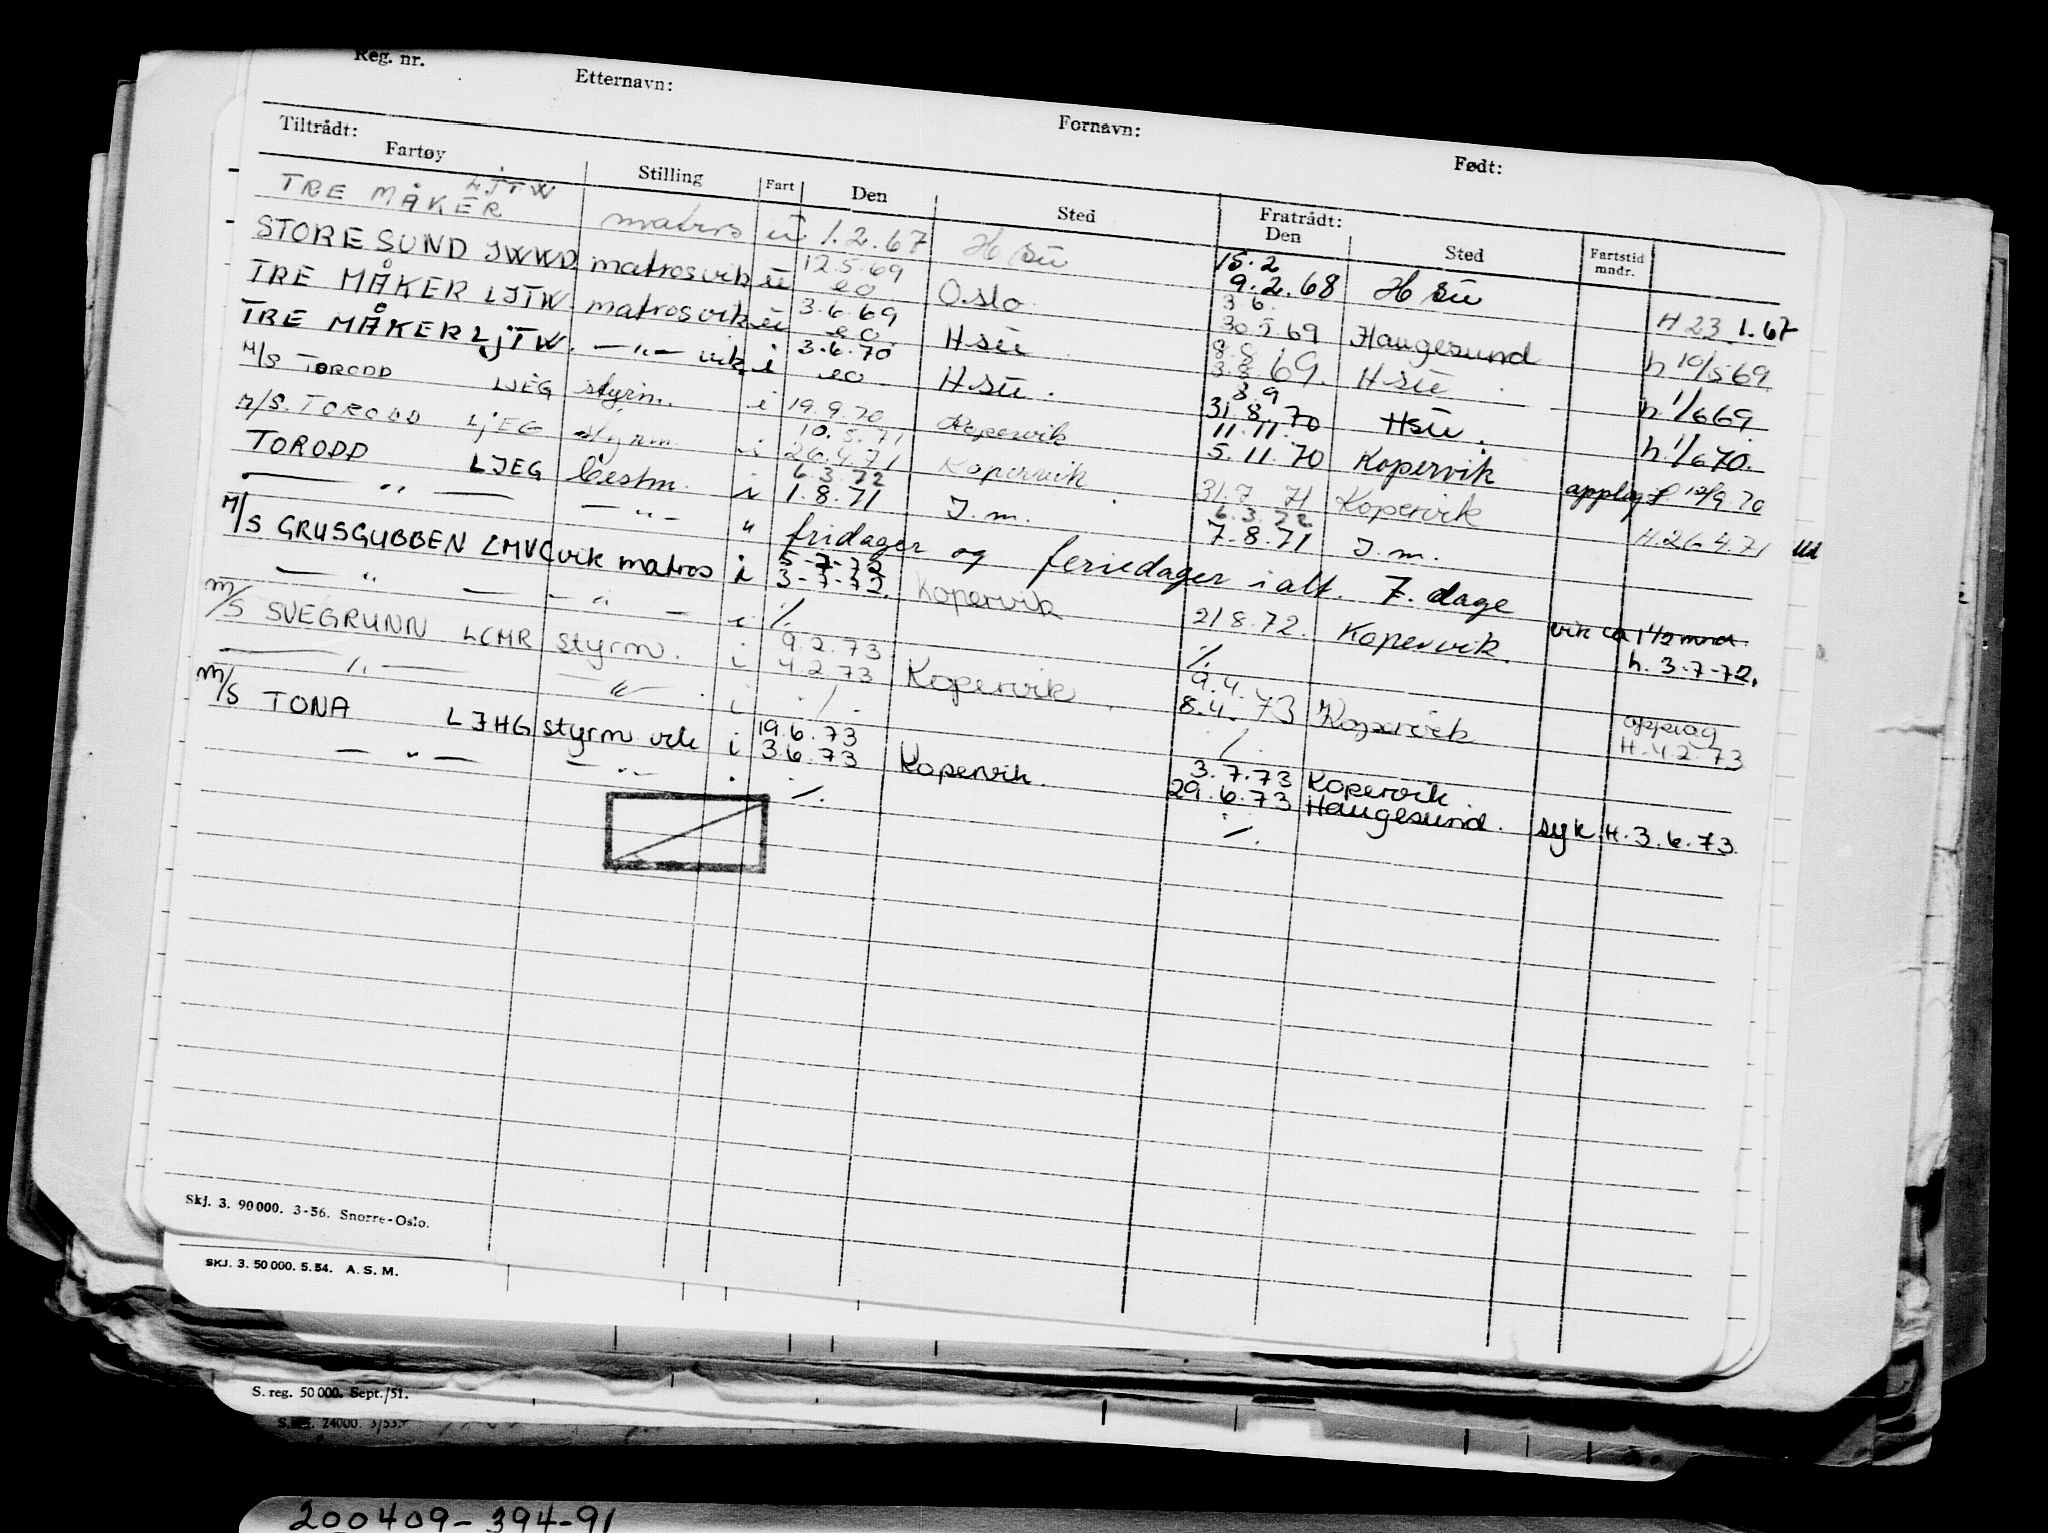 Reg. nr. Etternavn: Fornavn: Født:
Tiltrådt: Fratrådt:
Fartøy Stilling Fart Den Sted Den Sted Fartstid mndr.
LJTW
TRE MÅKER matros u 1.2.67 H su 15.2 9.2.68 H su H 23.1.67
STORESUND JWWD matros vik u 12.5.69 eo Oslo 3 6. 30.5.69 Haugesund h 10/5 69
TRE MÅKER LJTW. matros vik u 3.6.69 eo H su 8.8 3.8.69. H su h 1/6 69
TRE MÅKER LJTW. — " — vik i 3.6.70 eo H su. 8.9 31.8.70 H su. h. 1/6 70.
M/S TORODD LJEG styrm. i 19.9.70 Kopervik 11.11. 5.11.70 Kopervik opplag H 19/9 70
M/S. TORODD LJEG styrm. i 10.5.71 26.4.71 Kopervik 31.7 71 Kopervik H. 26.4.71 Ud
TORODD LJEG bestm. i 6.3.72 1.8.71 I.m. 6.3.72 7.8.71 I.m.
— " — — " — " fridager og feriedager i alt. 7. dage
M/S GRUSGUBBEN LMVC vik matros i 5-7-72 3-7-72. Kopervik 21 8.72. Kopervik. vik ca 1 1/2 mnd h. 3-7-72.
— " — — " — i %. %.
m/s SVEGRUNN LCMR styrm. i 9.2.73 4.2.73 Kopervik. 9.4. 8.4. 73 Kopervik opplag H. 4.2.73
— " — — " — . i ./. ./.
m/s TONA LJHG styrm vik i 19.6.73 3.6.73 Kopervik. 3.7.73 29.6.73 Kopervik Haugesund. syk H. 3.6.73.
— " — — " — . %. %.
Skj. 3. 90 000. 3-56. Snorre-Oslo.
SKJ. 3. 50 000. 5. 54. A. S. M.
S. reg. 50 000. Sept./51.
24000. 3/53.
200409-394-91